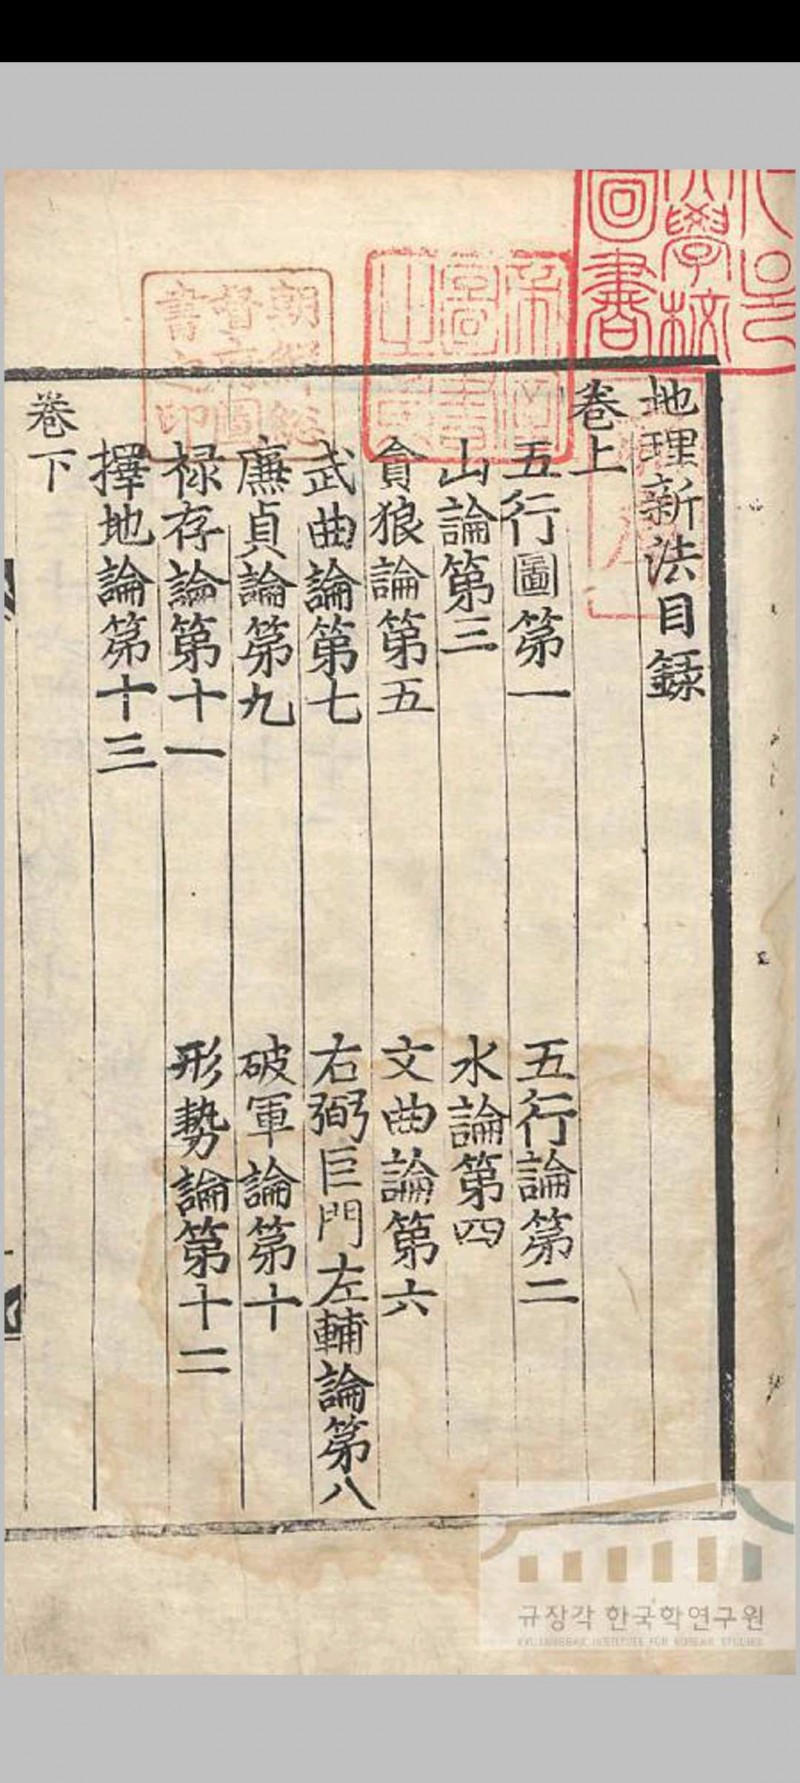 地理新法目録
卷上
五行圖第一　五行論第二
山論第三　水論第四
貪狼論第五　文曲論第六
武曲論第七　右弼巨門左輔論第八
廉貞論第九　破軍論第十
祿存論第十一　形勢論第十二
擇地論第十三
卷下
朝鮮総
督府圖
書之印
帝國
圖書
學校
圖書
규장각 한국학연구원
KYUJANGGAK INSTITUTE FOR KOREAN STUDIES